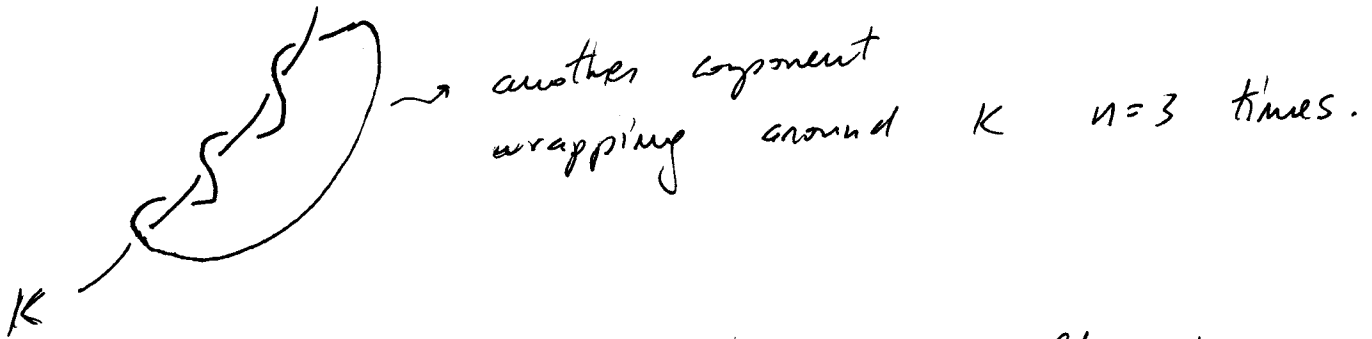 another component
wrapping around K n=3 times.
K